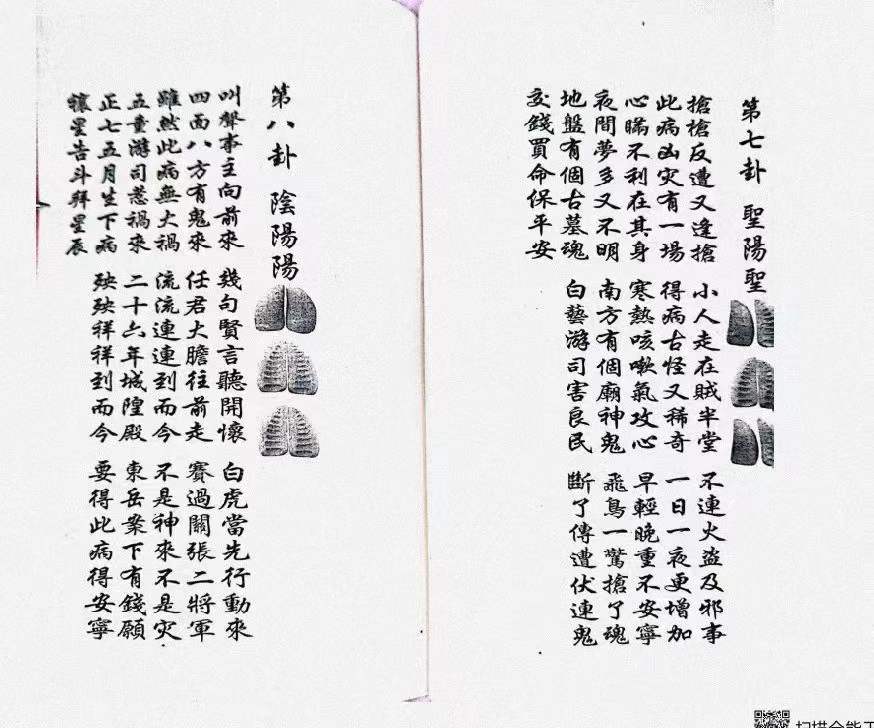 第七卦 聖陽聖
搶槍反遭又逢搶 小人走在賊半堂 不連火盜及邪事
此病凶灾有一場 得病古怪又稀奇 一日一夜更增加
心瞞不利在其身 寒熱咳嗽氣攻心 早輕晚重不安寧
夜間夢多又不明 南方有個廟神鬼 飛鳥一驚搶了魂
地盤有個古墓魂 白藝游司害良民 斷了傳遭伏連鬼
交錢買命保平安
第八卦 陰陽陽
叫聲事主向前來 幾句賢言聽開懷 白虎當先行動來
四面八方有鬼來 任君大膽往前走 賽過關張二將軍
雖然此病無大禍 流流連連到而今 不是神來不是灾
五童游司惹禍來 二十六年城隍殿 東岳案下有錢願
正七五月生下病 殃殃祥祥到而今 要得此病得安寧
禳星告斗拜星辰